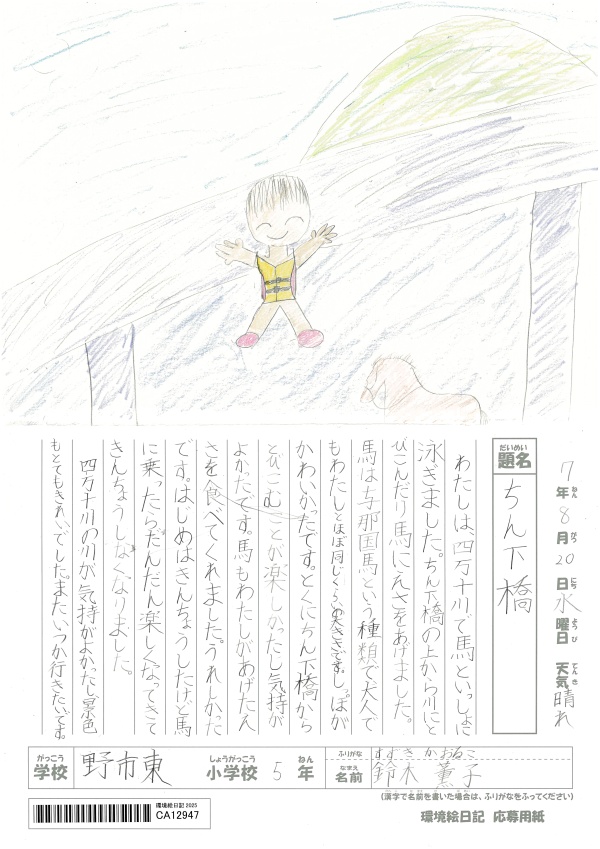 7年8月20日水曜日 天気晴れ
題名 ちん下橋
わたしは、四万十川で馬といっしょに
泳ぎました。ちん下橋の上から川にと
びこんだり馬にえさをあげました。
馬は与那国馬という種類で大人で
もわたしとほぼ同じくらいの大きさです。しっぽが
かわいかったです。とくにちん下橋から
とびこむことが楽しかったし気持が
よかたです。馬もわたしがあげたえ
さを食べてくれました。うれしかった
です。はじめはきんちょうしたけど馬
に乗ったらだんだん楽しくなってきて
きんちょうしなくなりました。
四万十川の川が気持がよかたし景色
もとてもきれいでした。またいつか行きたいです。
がっこう 学校 野市東 しょうがっこう 小学校 5 ねん 年
ふりがな すずき かおるこ
なまえ 名前 鈴木 薫子
(漢字で名前を書いた場合は、ふりがなをふってください)
環境絵日記 2025
CA12947
環境絵日記 応募用紙